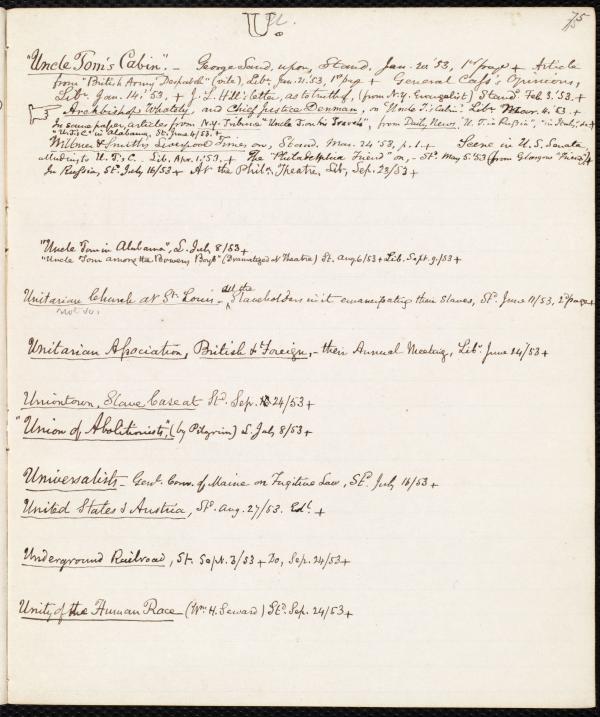 U.
75
"Uncle Tom's Cabin". - George Sand, upon, Stand. Jan. 20 '53, 1st page + Article
from "British Army Despatch" (vite), Libr. Jan. 21. '53, 1st pag + General Cass's Opinions,
Libr. Jan. 14. '53 + J. L. Hill's letter, as to truth of, (from N.Y. Evangelist) Stand Feb. 3. '53. +
Archbishop Whately, and Chief Justice Denman, on "Uncle T.'s Cabin" Libr. Mar. 4. '53. +
In same paper, articles from N.Y. Tribune "Uncle Tom his Travels", from Daily News, "U. T. in Russia", "in Italy," &c +
"U. T.'s C." in Alabama, St. June 4/53. +
Wilmer & Smith's Liverpool Times, on, Stand. Mar. 24 '53, p. 1. + Scene in U.S. Senate,
alluding to U. T.'s C. Lib. Apr. 1. '53. + The "Philadelphia Friend" on, - St. May 5. '53 (from Glasgow "Friend") +
In Russia, St. July 16/53 + At the Phila. Theatre, Lib. Sep. 23/53 +
"Uncle Tom in Alabama", L. July 8/53 +
"Uncle Tom among the Bowery Boys" (Dramatized at Theatre) St. Aug 6/53 + Lib. Sept. 9/53 +
Unitarian Church at St. Louis - all the Slaveholders in it emancipating their Slaves, Sd. June 11/53, 2d page +
not so.
Unitarian Association, British & Foreign, - their Annual Meeting, Libr. June 24/53 +
Uniontown, Slave Case at Sd. Sep. 24/53 +
"Union of Abolitionists", (by Pilgrim) L. July 8/53 +
Universalists - Genl. Conv. of Maine on Fugitive Law, Sd. July 16/53 +
United States & Austria, Sd. Aug. 27/53. Edl. +
Underground Railroad, St. Sept. 3/53 + Do, Sep. 24/53 +
Unity of the Human Race - (Wm H. Seward) Sd. Sep. 24/53 +